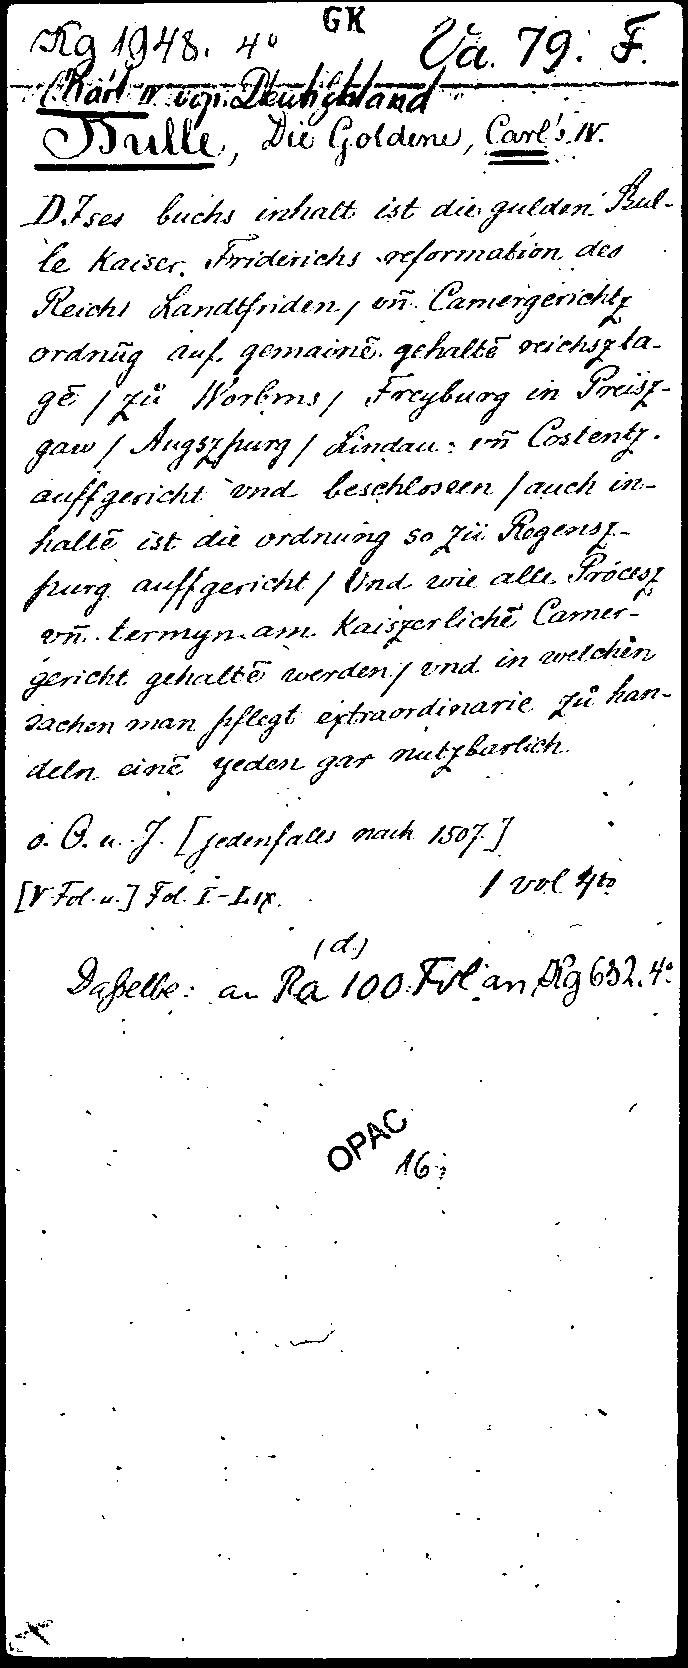 GK
Kg 1948. 4° Va. 79. F.
(Karl IV. von Deutschland)
Bulle, Die Goldene, Carl's IV.
DIses buchs inhalt ist die gulden Bul-
le Kaiser Friderichs reformation des
Reichs Landtfriden / vn̄ Camergerichtz
ordnūg auf gemainē gehaltē reichszta-
gē / zů Worbms / Freyburg in Preisz-
gaw / Augszpurg / Lindau: vn̄ Costentz.
auffgericht vnd beschlossen / auch in-
haltē ist die ordnung so zů Regensz-
purg auffgericht / Und wie alle Procesz
vn̄ termyn am Kaiszerlichē Camer-
gericht gehaltē werden / vnd in welchēn
sachen man pflegt extraordinarie zů han-
deln einē yeden gar nutzbarlich.
o. O. u. J. [jedenfalls nach 1507.]
[V Fol. u.] Fol. I-LIX. 1 vol 4to
(d.)
Daßelbe: an Ra 100. Fol. an Kg 632. 4°
OPAC
16